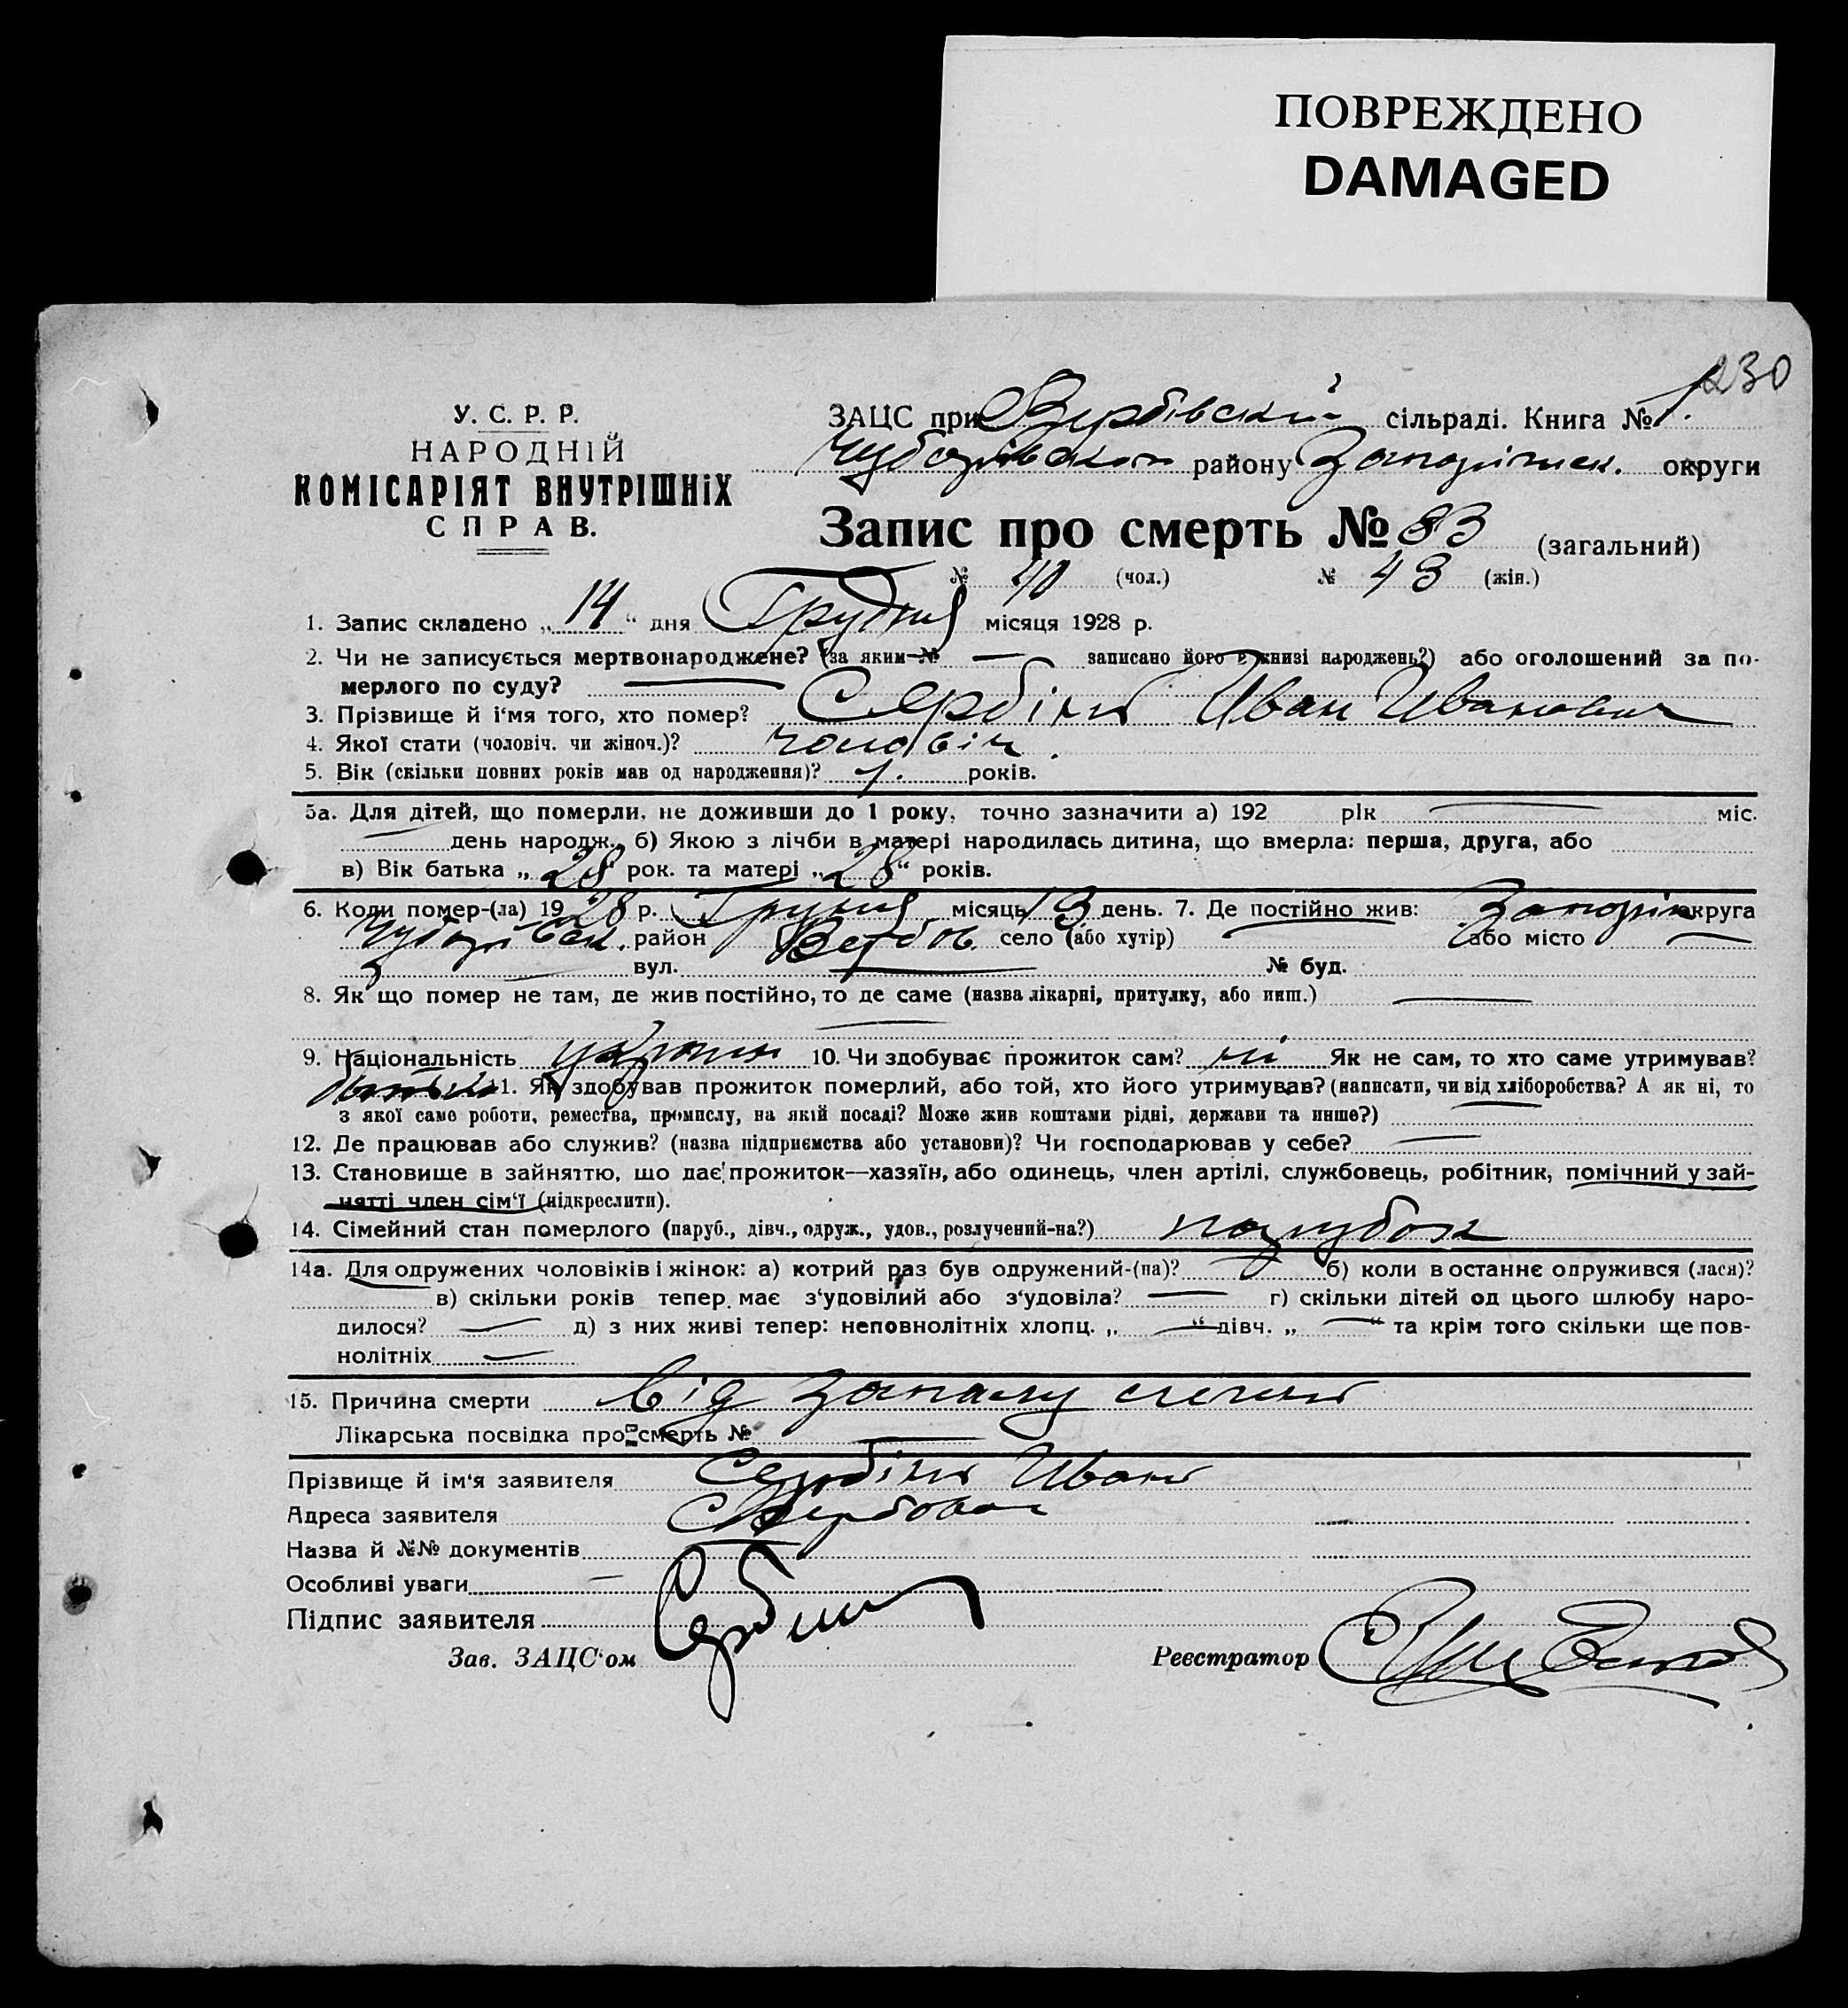 ПОВРЕЖДЕНО
DAMAGED
230
У. С. Р. Р.
НАРОДНІЙ
КОМІСАРІЯТ ВНУТРІШНІХ
СПРАВ.
ЗАЦС при Вербівській сільраді. Книга № 1.
Чубарівском району Запоріжск. округи
Запис про смерть № 83 (загальний)
№ 40 (чол.) № 43 (жін.)
1. Запис складено „ 14 " дня Грудня місяця 1928 р.
2. Чи не записується мертвонароджене? (за яким № — записано його в книзі народжень?) або оголошений за по-
мерлого по суду? —
3. Прізвище й і'мя того, хто помер? Сербін Иван Иванович
4. Якої стати (чоловіч. чи жіноч.)? чоловіч.
5. Вік (скільки повних років мав од народження)? 1. років.
5а. Для дітей, що померли, не доживши до 1 року, точно зазначити а) 192 рік — міс.
— день народж., б) Якою з лічби в матері народилась дитина, що вмерла: перша, друга, або
в) Вік батька „ 28 " рок. та матері „ 28 " років.
6. Коли помер-(ла) 19 28 р. Грудня місяць 13 день. 7. Де постійно жив: Запоріж округа
Чубарівск. район Вербов. село (або хутір) — або місто —
вул. — № буд.
8. Як що помер не там, де жив постійно, то де саме (назва лікарні, притулку, або инш.) —
—
9. Національність україн 10. Чи здобуває прожиток сам? ні Як не сам, то хто саме утримував?
батько 11. Як здобував прожиток померлий, або той, хто його утримував? (написати, чи від хліборобства? А як ні, то
з якої саме роботи, ремества, промислу, на якій посаді? Може жив коштами рідні, держави та инше?) —
12. Де працював або служив? (назва підприємства або установи)? Чи господарював у себе? —
13. Становище в зайняттю, що дає прожиток—хазяїн, або одинець, член артілі, службовець, робітник, помічний у зай-
нятті член сім'ї (підкреслити).
14. Сімейний стан померлого (паруб., дівч., одруж., удов., розлучений-на?) парубок
14а. Для одружених чоловіків і жінок: а) котрий раз був одружений-(на)? — б) коли в останнє одружився (лася)?
в) скільки років тепер має з'удовілий або з'удовіла? — г) скільки дітей од цього шлюбу наро-
дилося? — д) з них живі тепер: неповнолітніх хлопц. „ — " дівч. „ — " та крім того скільки ще пов-
нолітніх —
15. Причина смерти від запалу
Лікарська посвідка про смерть № —
Прізвище й ім'я заявителя Сербін Иван
Адреса заявителя С Вербовая
Назва й №№ документів —
Особливі уваги —
Підпис заявителя Сербин
Зав. ЗАЦС'ом Реєстратор